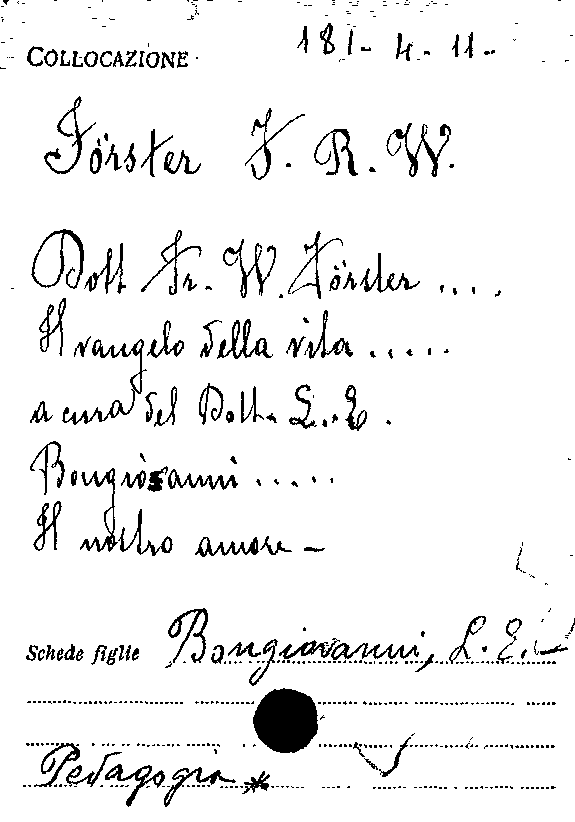 COLLOCAZIONE 181-4-11-
Förster F. R. W.
Dott Fr. W. Förster ....
Il vangelo della vita .....
a cura del Dott. L. E.
Bongiovanni .....
Il nostro amore -
Schede figlie Bongiovanni, L. E.
Pedagogia *